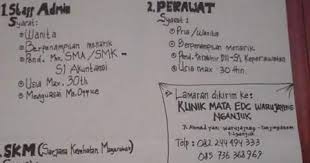 1. Staff Admin
Syarat:
• Wanita
• Berpenampilan menarik
• Pend. Min. SMA/SMK
S1 Akuntansi
• Usia Max. 30th
• Menguasai Ms. Office
. SKM (Sarjana Kesehatan Masyarakat)
2. PERAWAT
Syarat:
• Pria/Wanita
• Berpenampilan menarik
• Pend. DIII-S1 Keperawatan
• Usia max 30 thn.
Lamaran dikirim ke:
KLINIK MATA EDC WARUJAYENG
NGANJUK
Jl. Ahmad yani warujayeng - tanjunganom
Nganjuk
Telp : 082 244 494 333
085 736 368 969